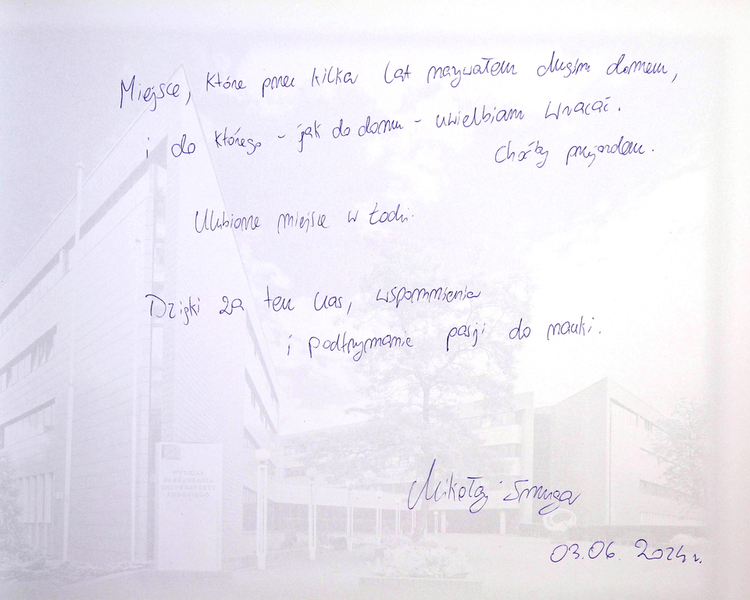 Miejsce, które przez kilka lat nazywałem drugim domem,
i do którego - jak do domu - uwielbiam wracać.
Choćby przejazdem.
Ulubione miejsce w Łodzi.
Dzięki za ten czas, wspomnienia
i podtrzymanie pasji do nauki.
Mikołaj Smuga
03.06.2024 r.
WYDZIAŁ
ZARZĄDZANIA
UNIWERSYTETU
ŁÓDZKIEGO